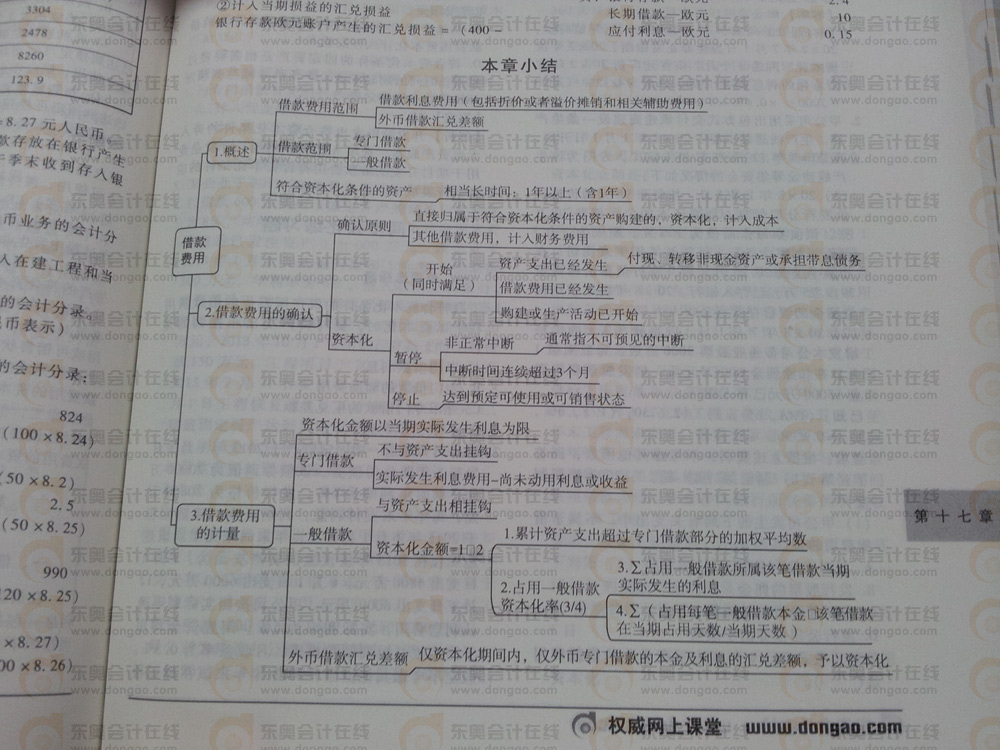 3304
2478
8260
123. 9
=8. 27 元人民币。
款存放在银行产生
一季末收到存入银
币业务的会计分
人在建工程和当
的会计分录。
民币表示)
的会计分录;
824
(100 × 8. 24)
(50 × 8. 2)
2. 5
(50 × 8. 25)
990
120 × 8. 25)
× 8. 27)
00 × 8. 26)
②计入当期损益的汇兑损益
银行存款欧元账户产生的汇兑损益 = (400 -
2. 4
长期借款—欧元
10
应付利息—欧元
0. 15
本章小结
借款费用
1.概述
借款费用范围
借款利息费用(包括折价或者溢价摊销和相关辅助费用)
外币借款汇兑差额
借款范围
专门借款
一般借款
符合资本化条件的资产
相当长时间:1年以上(含1年)
2.借款费用的确认
确认原则
直接归属于符合资本化条件的资产购建的,资本化,计入成本
其他借款费用,计入财务费用
资本化
开始
(同时满足)
资产支出已经发生
付现、转移非现金资产或承担带息债务
借款费用已经发生
购建或生产活动已开始
暂停
非正常中断
通常指不可预见的中断
中断时间连续超过3个月
停止
达到预定可使用或可销售状态
3.借款费用
的计量
资本化金额以当期实际发生利息为限
专门借款
不与资产支出挂钩
实际发生利息费用-尚未动用利息或收益
一般借款
与资产支出相挂钩
资本化金额=1□2
1.累计资产支出超过专门借款部分的加权平均数
2.占用一般借款
资本化率(3/4)
3.∑占用一般借款所属该笔借款当期
实际发生的利息
4.∑(占用每笔一般借款本金□该笔借款
在当期占用天数/当期天数)
外币借款汇兑差额
仅资本化期间内,仅外币专门借款的本金及利息的汇兑差额,予以资本化
第十七章
权威网上课堂 www.dongao.com
东奥会计在线
www.dongao.com